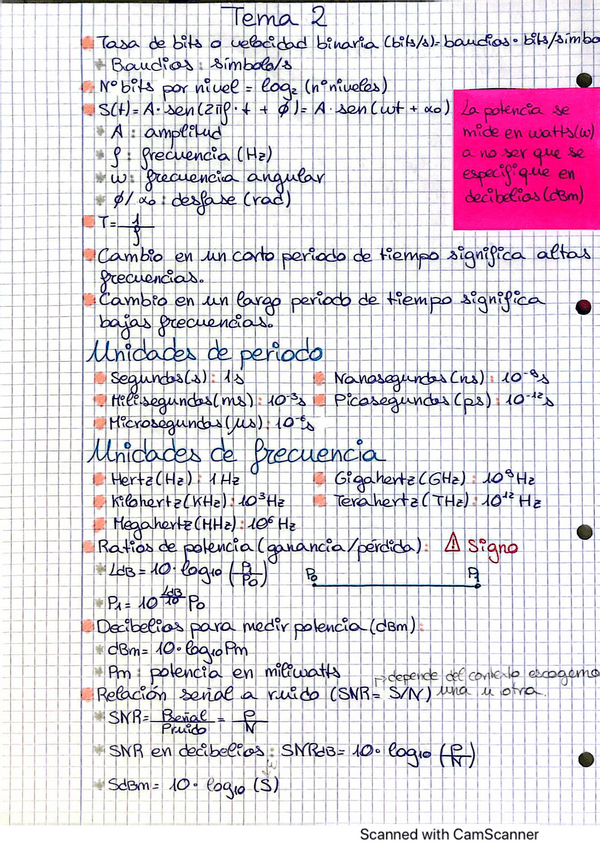 Tema 2
Tasa de bits o velocidad binaria (bits/s)= baudios · bits/símbo
Baudios: símbolo/s
Nº bits por nivel = log₂ (nº niveles)
S(t) = A· sen(2πf·t + ϕ) = A· sen(ωt + αo)
A: amplitud
f: frecuencia (Hz)
ω: frecuencia angular
ϕ/αo: desfase (rad)
La potencia se
mide en watts(w)
a no ser que se
especifique en
decibelios (dBm)
T= 1/f
Cambio en un corto periodo de tiempo significa altas
frecuencias.
Cambio en un largo periodo de tiempo significa
bajas frecuencias.
Unidades de periodo
Segundos(s): 1s
Nanosegundos (ns): 10⁻⁹s
Milisegundos(ms): 10⁻³s
Picosegundos (ps): 10⁻¹²s
Microsegundos (μs): 10⁻⁶s
Unidades de frecuencia
Hertz (Hz): 1 Hz
Gigahertz (GHz): 10⁹ Hz
Kilohertz (KHz): 10³ Hz
Terahertz (THz): 10¹² Hz
Megahertz (MHz): 10⁶ Hz
Ratios de potencia (ganancia/pérdida): ⚠ Signo
LdB = 10· log₁₀ (P₁/P₀)
P₀ P₁
P₁ = 10^(LdB/10) P₀
Decibelios para medir potencia (dBm):
dBm = 10· log₁₀ Pm
Pm: potencia en miliwatts
depende del contexto escogemo
Relación señal a ruido (SNR= S/N) una u otra.
SNR= Pseñal/Pruido = P/N
SNR en decibelios: SNRdB = 10· log₁₀ (P/N)
SdBm = 10· log₁₀ (S)
Scanned with CamScanner